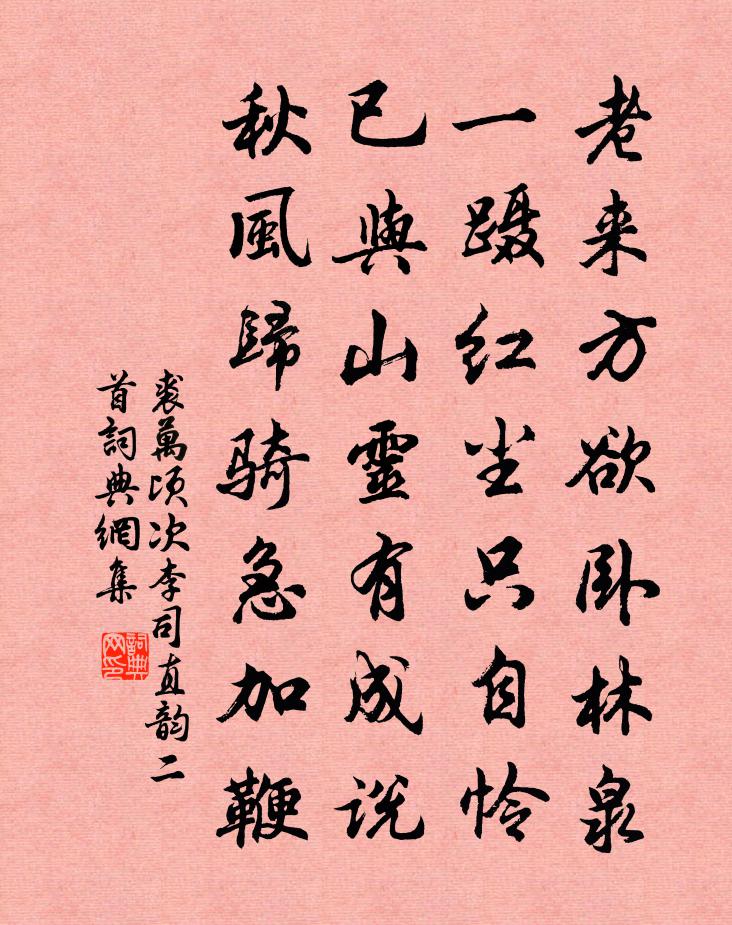 老来方欲卧林泉
一蹑红尘只自怜
已與山靈有成说
秋風歸骑急加鞭
裘萬頃次李司直韵二
首詞典網集
詞典
网印